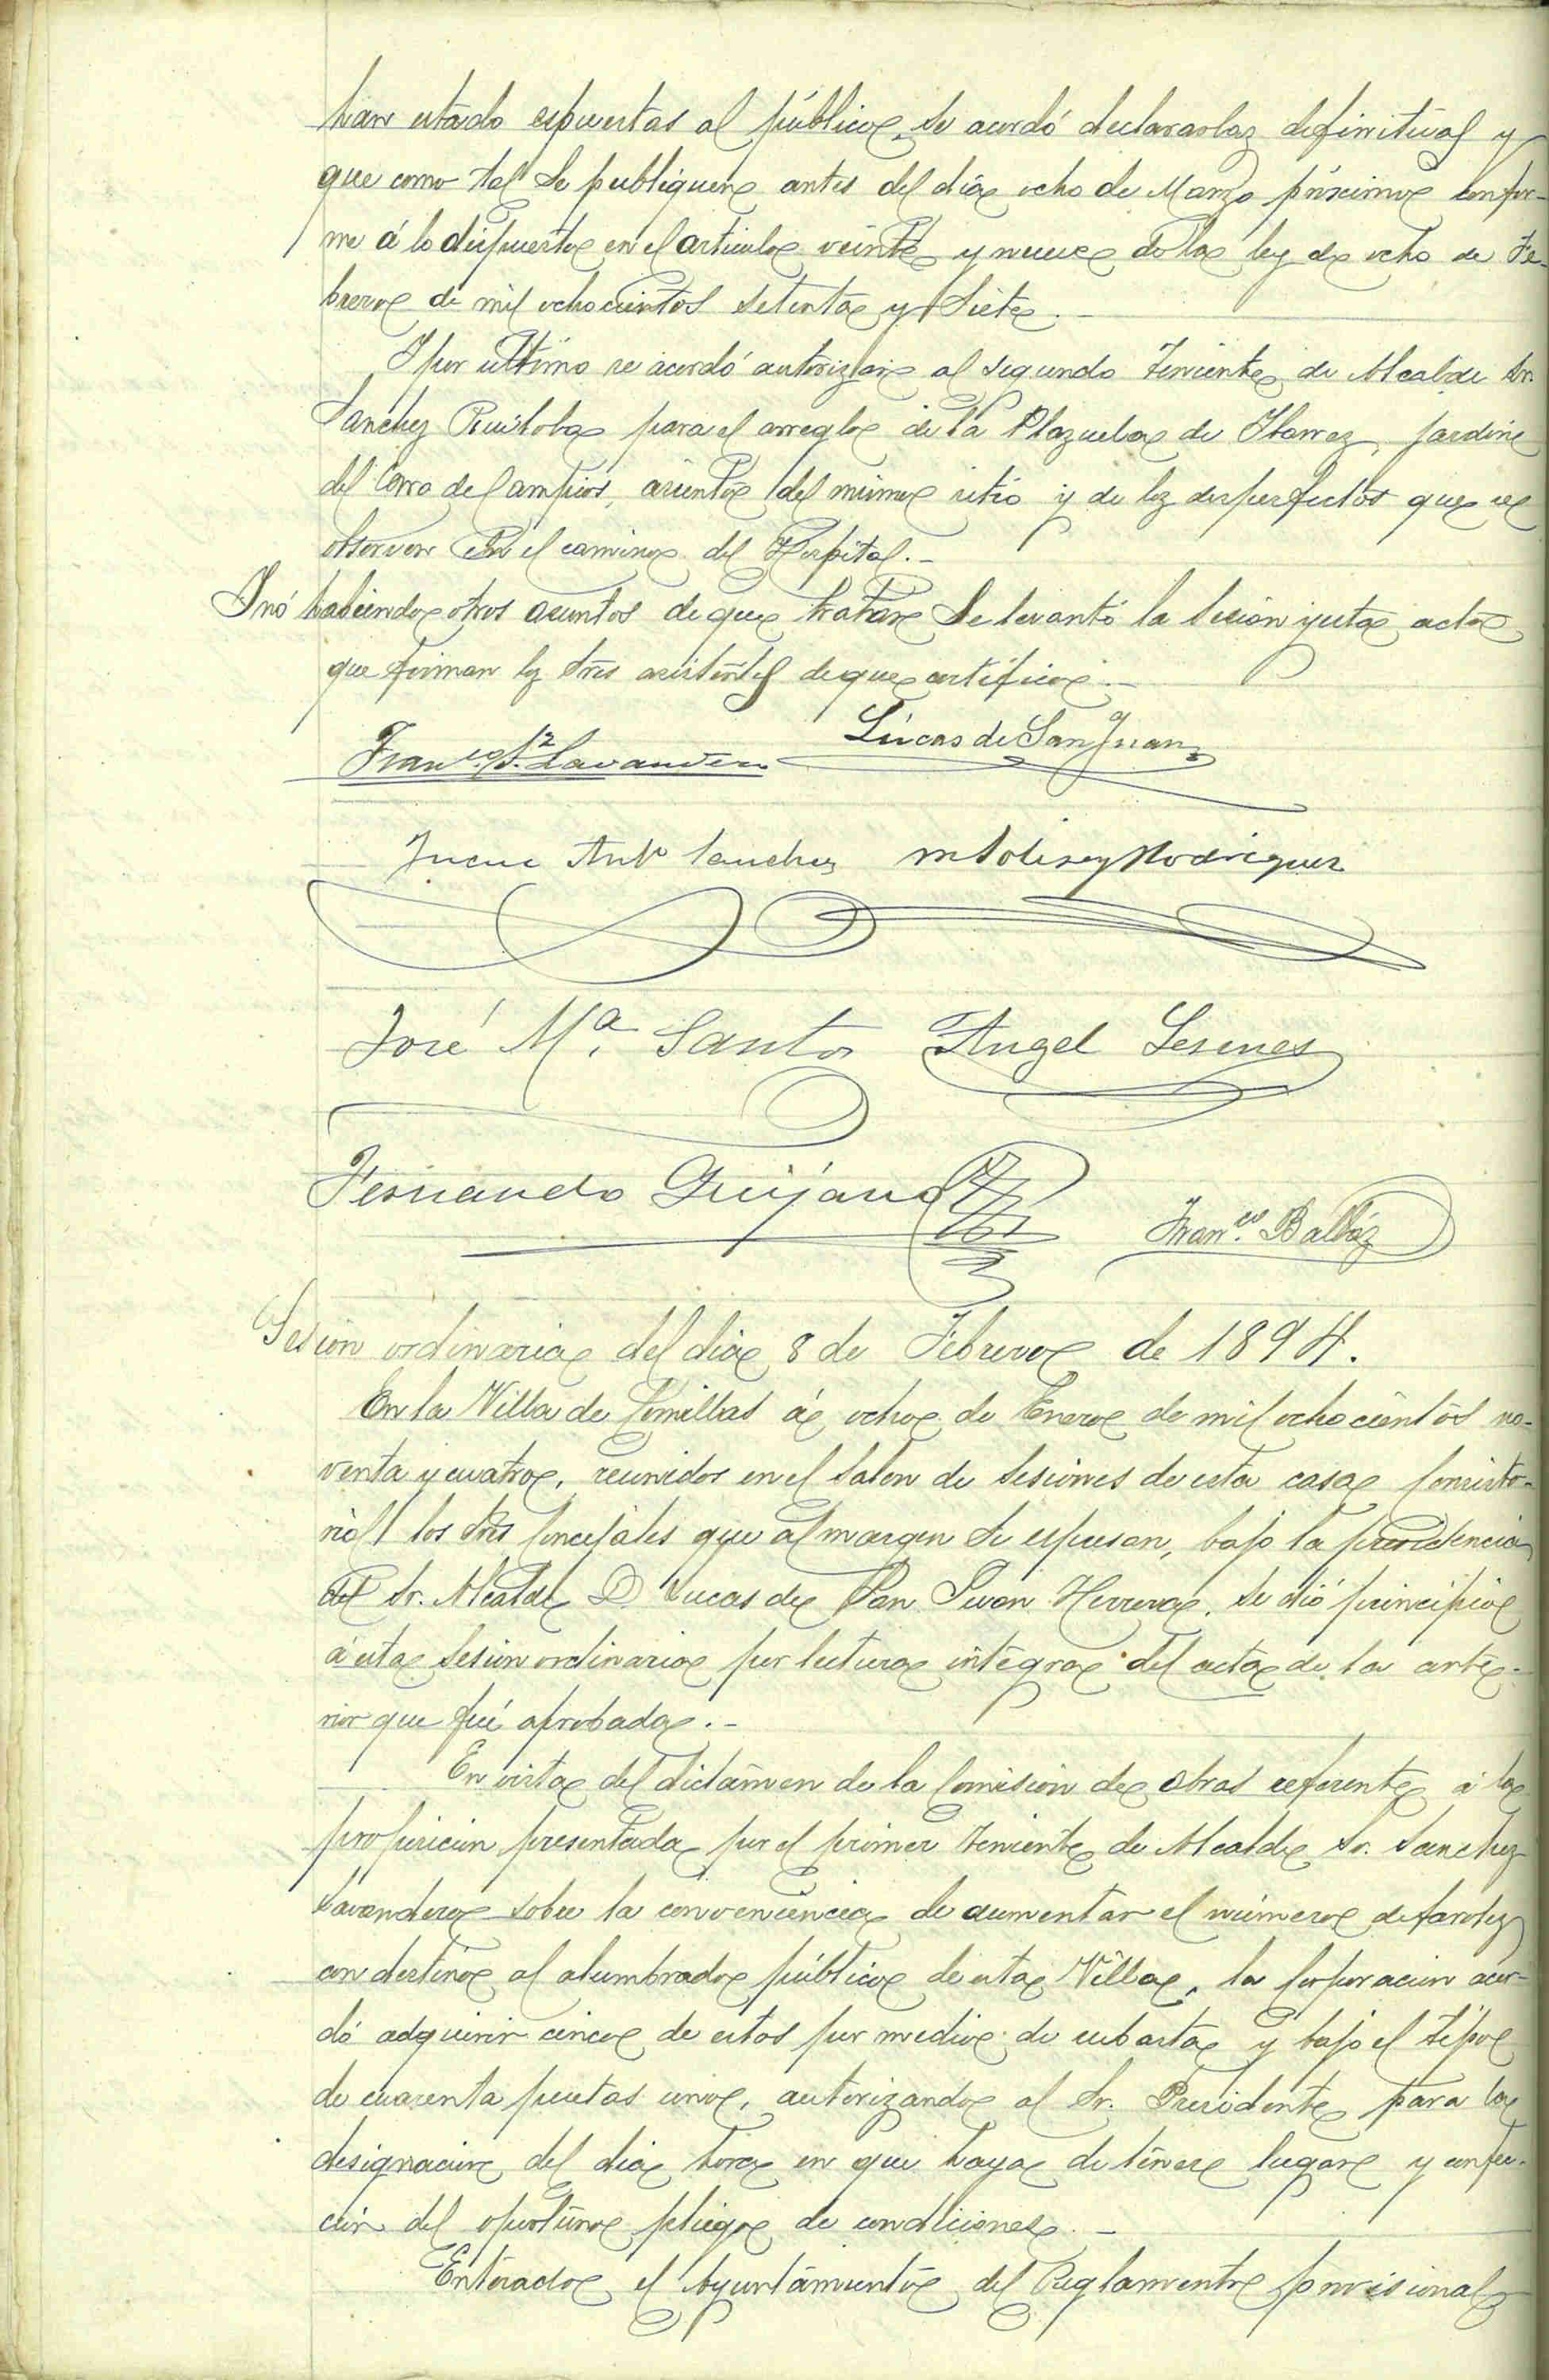 han estado espuestas al público, se acordó declararlas definitivas y
que como tal se publiquen antes del día ocho de Marzo próximo confor-
me á lo dispuesto en el artículo veinte y nueve de la ley de ocho de Fe-
brero de mil ochocientos setenta y siete.-
Y por último se acordó autorizar al segundo Teniente de Alcalde Sr.
Sanchez Ruiloba para el arreglo de la Plazuela de Ibarrez, jardin
del Corro de Campios, asientos del mismo sitio y de los desperfectos que se
observen en el camino del Hospital.-
Y no habiendo otros asuntos de que tratar se levantó la sesion y esta acta
que firman los Sres asistentes de que certifico.-
Franco. Sz. Lavandero Lúcas de San Juan
Juan Anto Sanchez M Solis y Rodriguez
José Ma. Santos Angel
Fernando Quijano Franco. Balbás
Sesion ordinaria del dia 8 de Febrero de 1894.
En la Villa de Comillas á ocho de Enero de mil ochocientos no-
venta y cuatro, reunidos en el Salon de Sesiones de esta casa Consisto-
rial los Sres Concejales que al margen se espresan, bajo la presidencia
del Sr. Alcalde D Lucas de San Juan Herrera, se dió principio
á esta sesion ordinaria por lectura integra del acta de la ante-
rior que fué aprobada.-
En vista del dictámen de la Comision de obras referente á la
proposicion presentada por el primer Teniente de Alcalde Sr. Sanchez
Lavandero sobre la conveniencia de aumentar el número de faroles
con destino al alumbrado público de esta Villa, la Corporacion acor-
dó adquirir cinco de estos por medio de subasta y bajo el tipo
de cuarenta pesetas uno, autorizando al Sr. Presidente para la
designacion del dia hora en que haya de tener lugar y confec-
cion del oportuno pliego de condiciones.-
Enterado el Ayuntamiento del Reglamento provisional